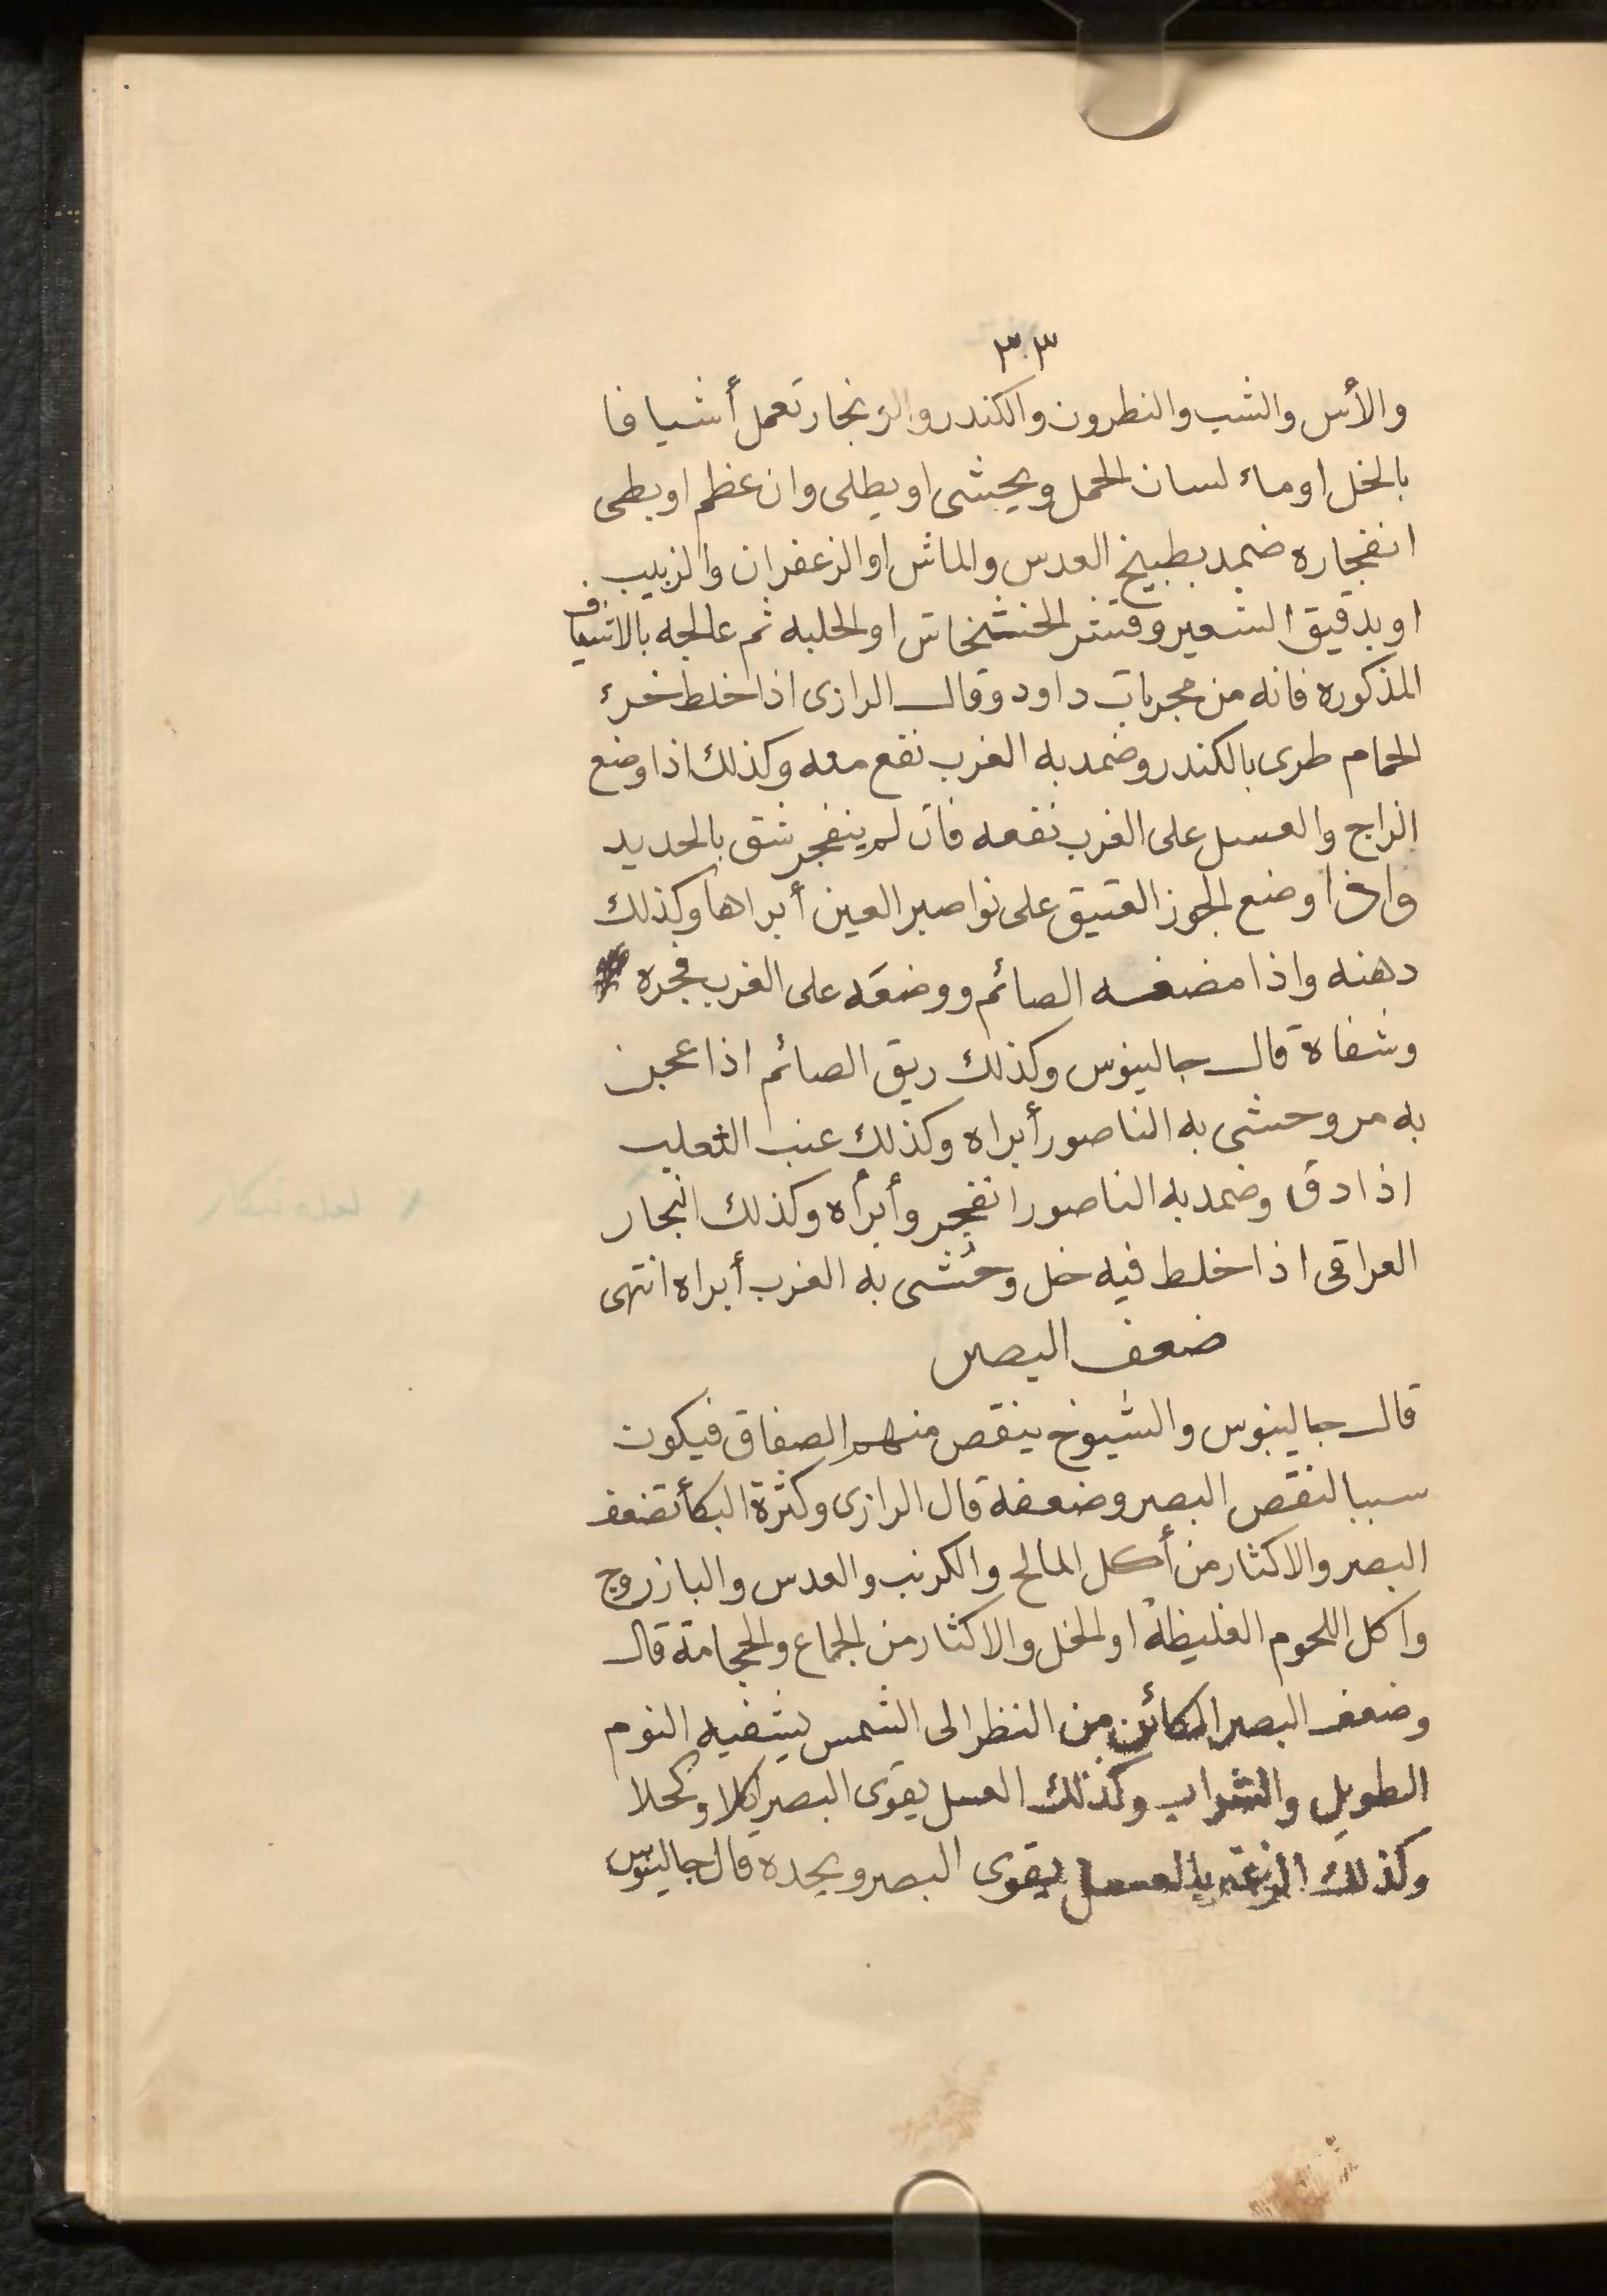 ٣٠٣
والأس والشب والنطرون والكندر والزنجار تعمل أشيافا
بالخل او ماء لسان الحمل ويحشى او يطلى وان عظم او بطى
انفجاره ضمد بطبيخ العدس والماش او الزعفران والزبيب
او بدقيق الشعير وقشر الخشخاش او الحلبه ثم عالجه بالاشياف
المذكوره فانه من مجربات داود وقال الرازى اذا خلط خرء
الحمام طرى بالكندر وضمد به الغرب نفع معه وكذلك اذا وضع
الزاج والعسل على الغرب نفعه فان لم ينفجر شق بالحديد
واذا وضع الجوز العتيق على نواصير العين أبراها وكذلك
دهنه واذا مضغه الصائم ووضعه على الغرب فجره
وشفاه قال جالينوس وكذلك ريق الصائم اذا عجن
به مر وحشى به الناصور أبراه وكذلك عنب الثعلب
اذا دق وضمد به الناصور انفجر وأبرأه وكذلك انجار
العراقى اذا خلط فيه خل وحُشى به الغرب أبراه انتهى
ضعف البصر
قال جالينوس والشيوخ ينقص منهم الصفاق فيكون
سببا لنقص البصر وضعفه قال الرازى وكثرة البكأ تضعف
البصر والاكثار من أكل المالح والكرنب والعدس والبازروج
واكل اللحوم الغليظة او الخل والاكثار من الجماع والحجامة قال
وضعف البصر الكائن من النظر الى الشمس يشفيه النوم
الطويل والشراب وكذلك العسل يقوى البصر اكلا وكحلا
وكذلك بالعسل يقوى البصر ويحده قال جالينوس